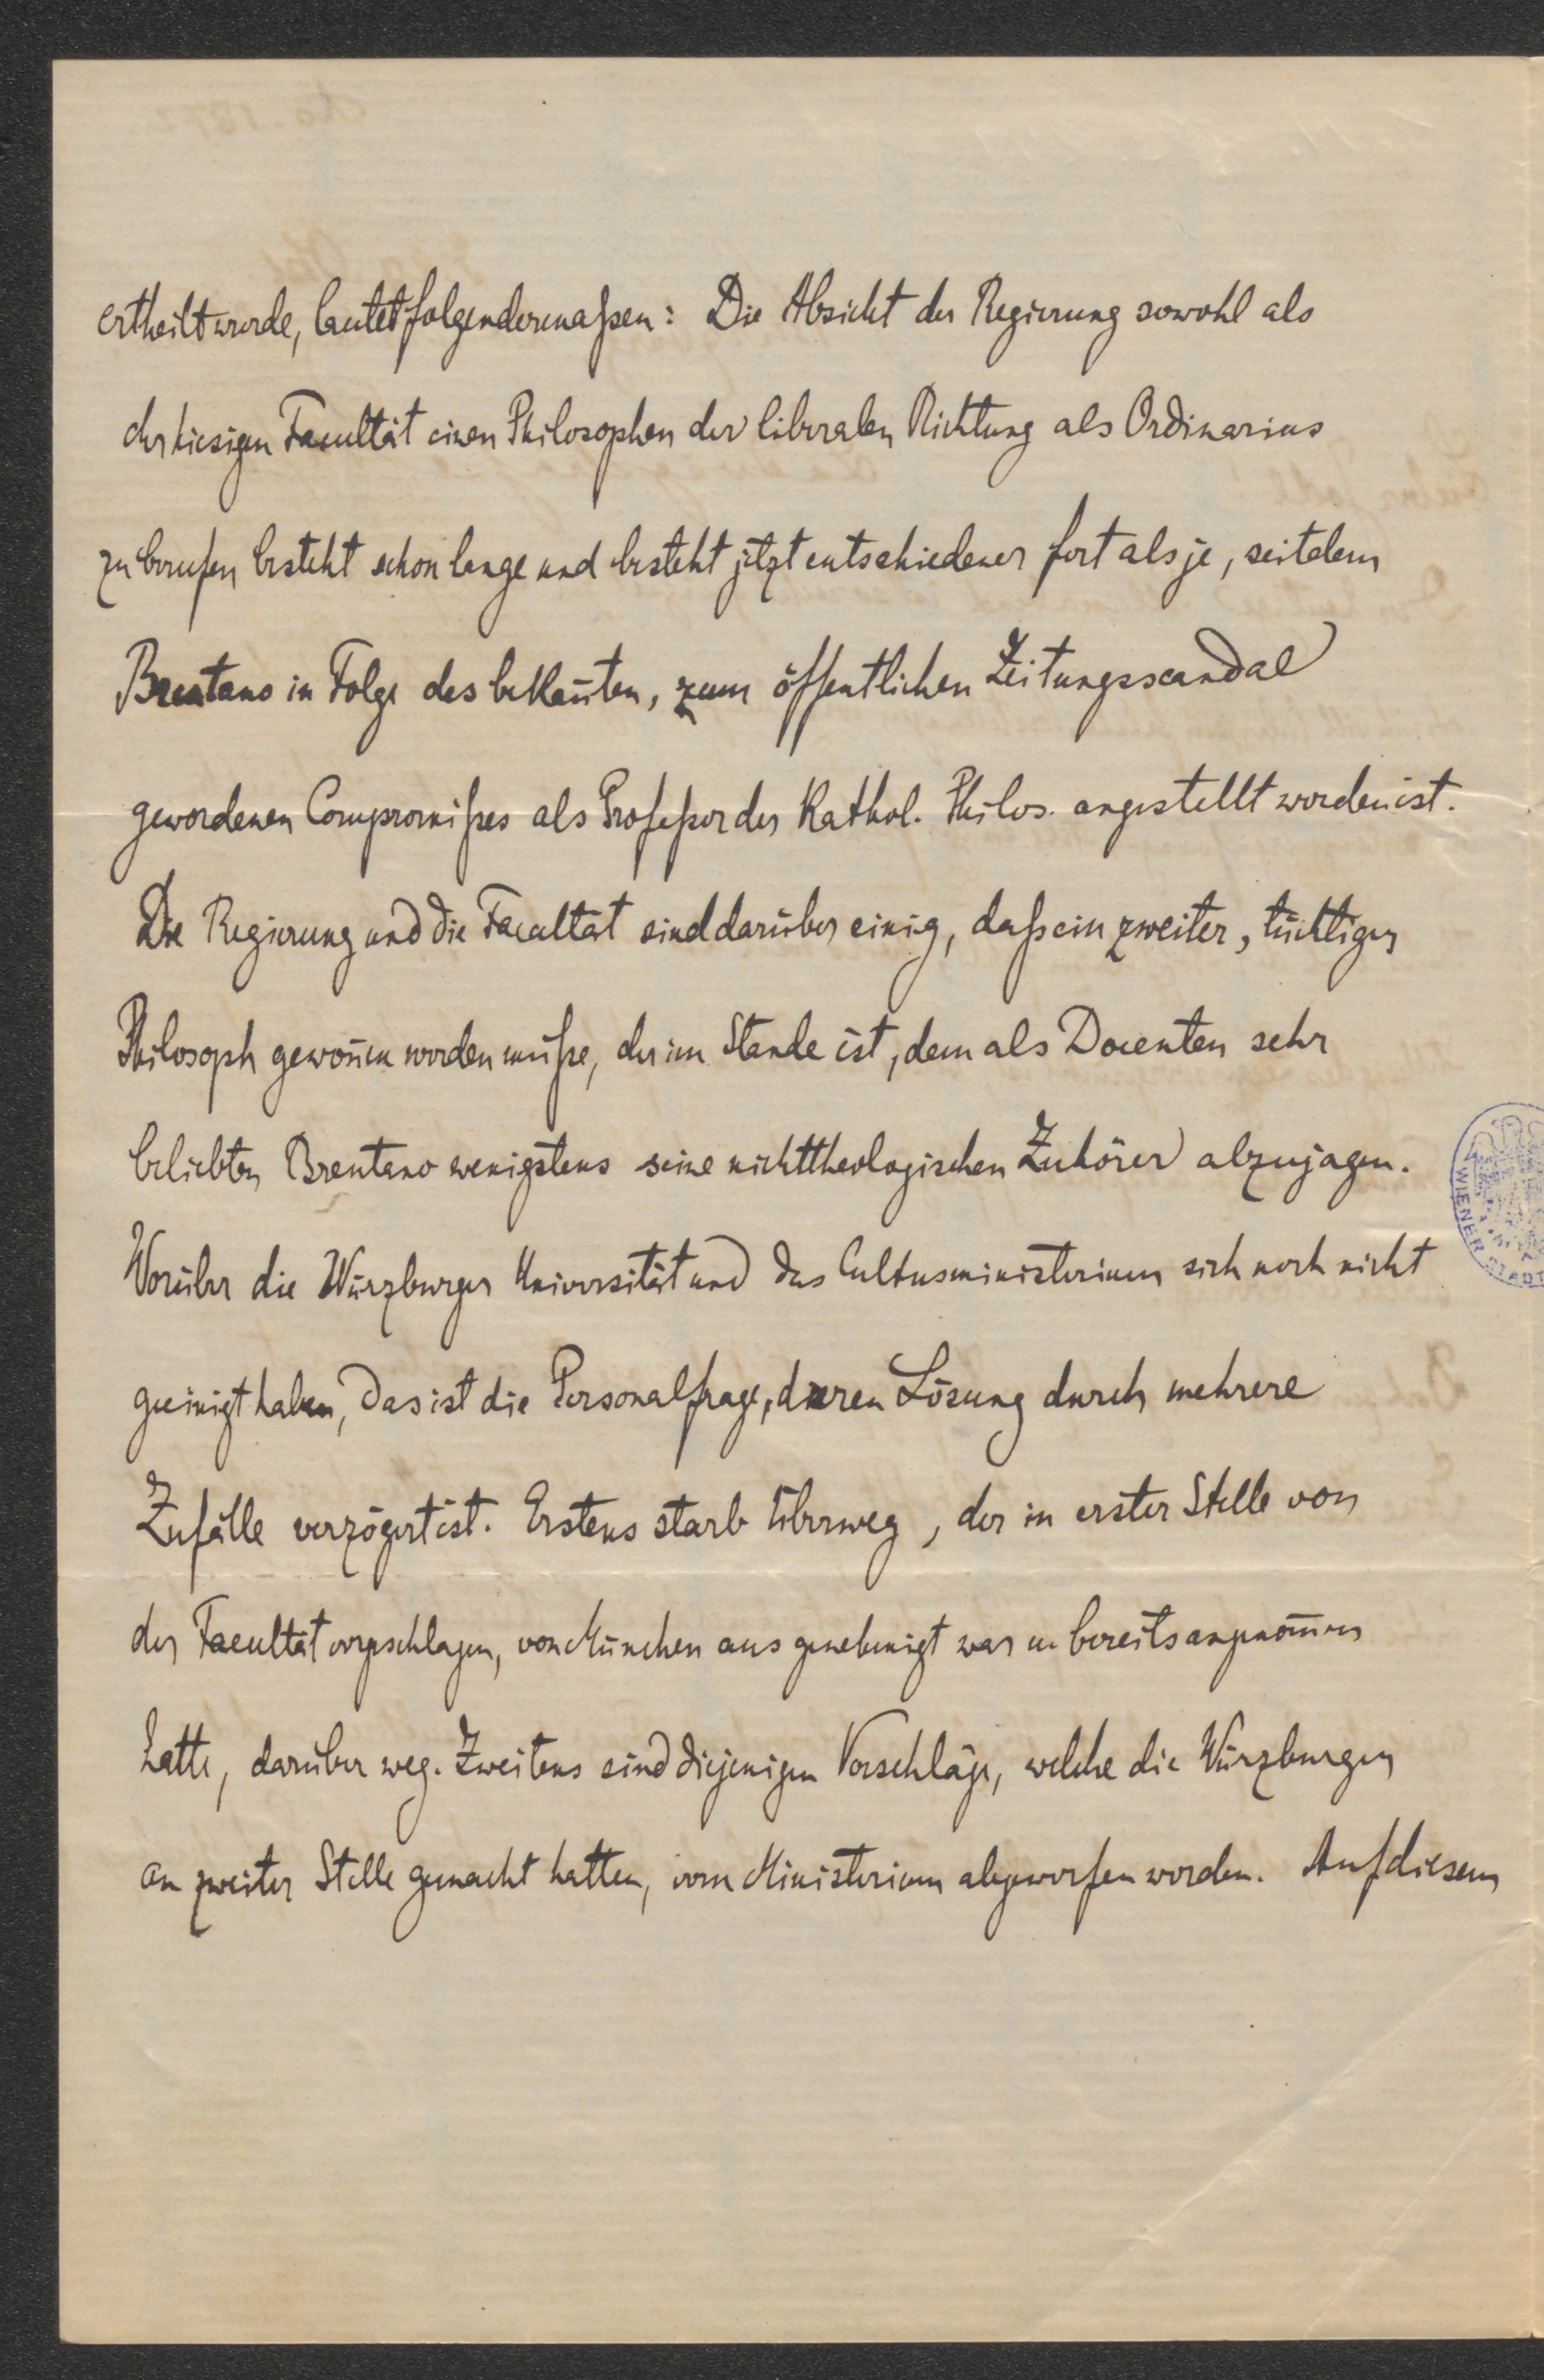 ertheilt wurde, lautet folgendermaßen: Die Absicht der Regierung sowohl als
der hiesigen Facultät einen Philosophen der liberalen Richtung als Ordinarius
zu berufen besteht schon lange und besteht jetzt entschiedener fort als je, seitdem
Brentano in Folge des bekan̄ten, zum öffentlichen Zeitungsscandal
gewordenen Compromißes als Profeßor der Kathol. Philos. angestellt worden ist.
Die Regierung und die Facultät sind darüber einig, daß ein zweiter, tüchtiger
Philosoph gewon̄en werden müße, der im Stande ist, dem als Docenten sehr
beliebten Brentano wenigstens seine nichttheologischen Zuhörer abzujagen.
Worüber die Würzburger Universität und das Cultusministerium sich noch nicht
geeinigt haben, das ist die Personalfrage, deren Lösung durch mehrere
Zufälle verzögert ist. Erstens starb Überweg, der in erster Stelle von
der Facultät vorgeschlagen, von München aus genehmigt war u bereits angenom̄en
hatte, darüber weg. Zweitens sind diejenigen Vorschläge, welche die Würzburger
an zweiter Stelle gemacht hatten, vom Ministerium abgeworfen worden. Auf diesem
WIENER STADT